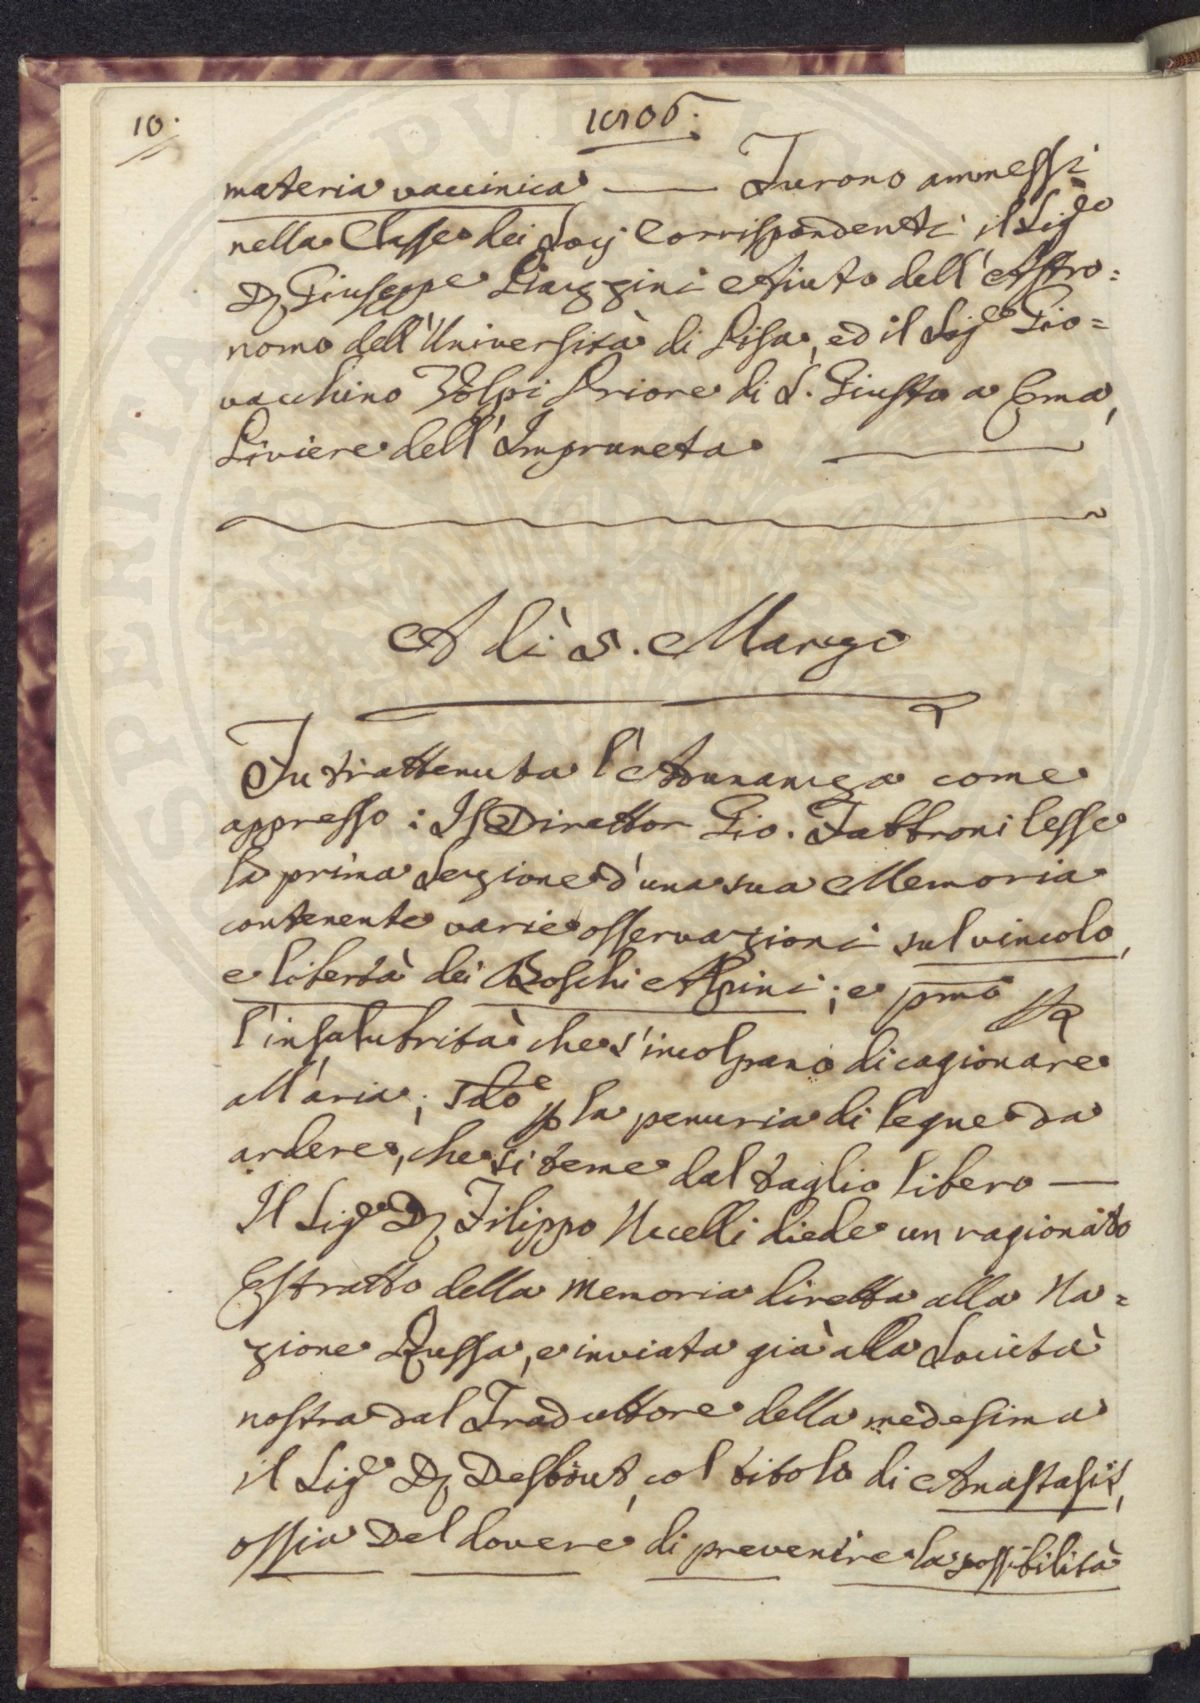 10.
1806.
materia vaccinica — Furono ammessi
nella Classe dei Socj Corrispondenti il Sig.e
D. Giuseppe Piazzini Aiuto dell'Astro=
nomo dell'Università di Pisa, ed il Sig.e Gio=
vacchino Volpi Priore di S. Giusto a Ema,
Piviere dell'Impruneta —
A dì 5. Marzo
Fu trattenuta l'Adunanza come
appresso: Il Direttor Gio. Fabbroni lesse
la prima Sezione d'una sua Memoria
contenente varie osservazioni sul vincolo,
e libertà dei Boschi Alpini; e pmo p
l'insalubrità che s'incolpano di cagionare
all'aria; sdo e p la penuria di legne da
ardere, che si teme dal taglio libero —
Il Sig.e D. Filippo Uccelli diede un ragionato
Estratto della Memoria diretta alla Na=
zione Russa, e inviata già alla Società
nostra dal Traduttore della medesima
il Sig.e D. Desbout, col titolo di Anastasis,
ossia Del dovere di prevenire la possibilità